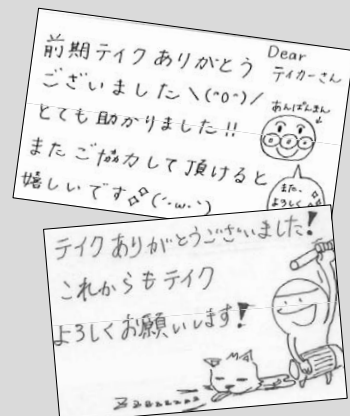 前期テイクありがとう
ございました＼(^o^)／
とても助かりました!!
またご協力して頂けると
嬉しいです(´･ω･`)
Dear
テイカーさん
あんぱんまん
また、
よろしく
テイクありがとうございました!
これからもテイク
よろしくお願いします!
Zzzzzzzz